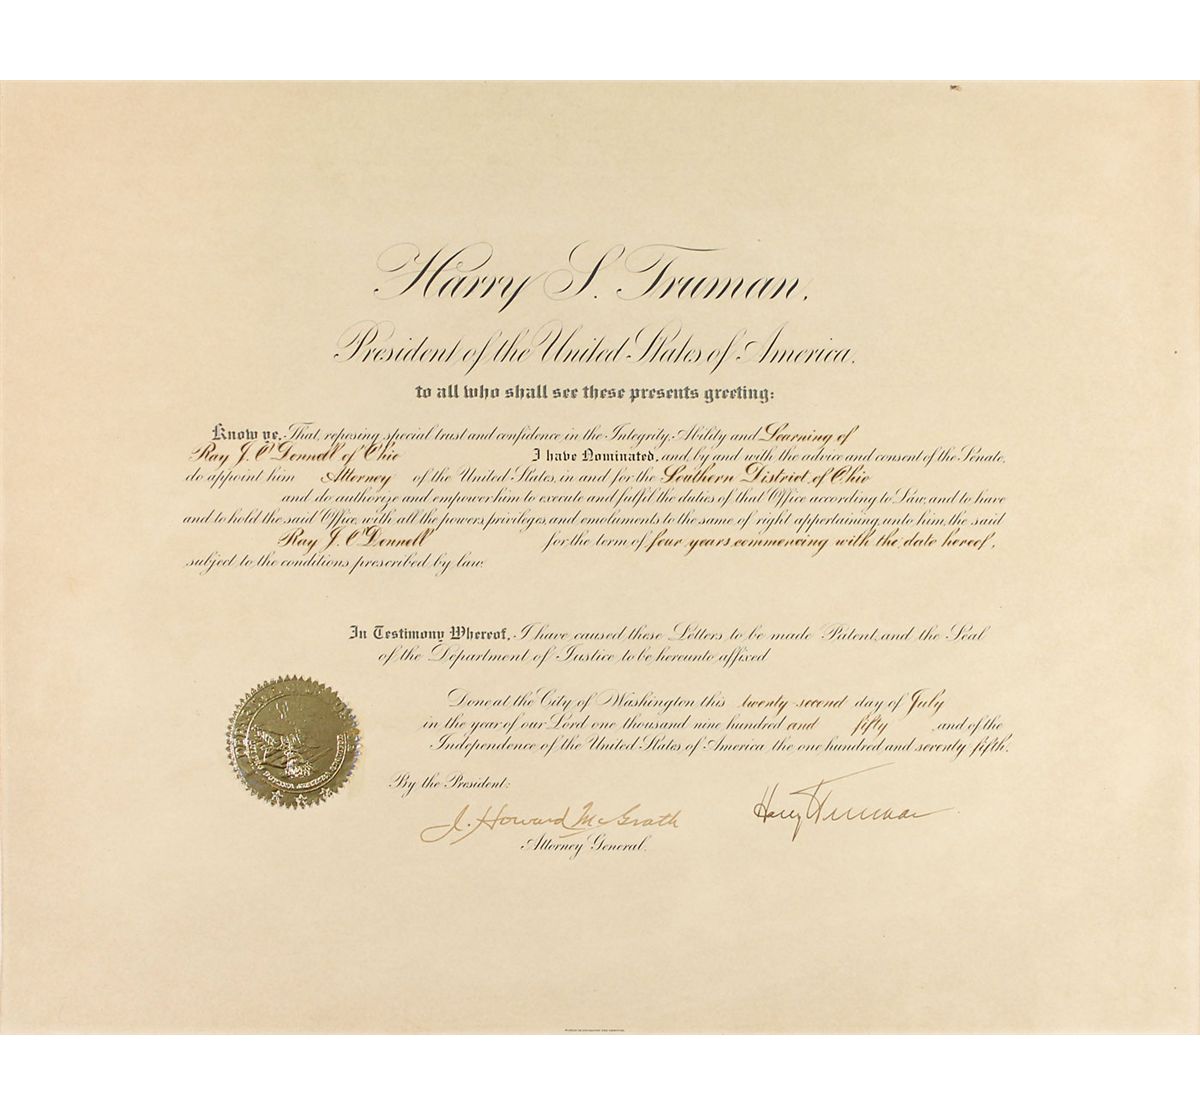 Harry S. Truman,
President of the United States of America.
to all who shall see these presents greeting:
Know ye, That, reposing special trust and confidence in the Integrity, Ability and Learning of
Ray J. O'Donnell of Ohio I have Nominated, and, by and with the advice and consent of the Senate,
do appoint him Attorney of the United States, in and for the Southern District of Ohio
and do authorize and empower him to execute and fulfil the duties of that Office according to Law, and to have
and to hold the said Office, with all the powers, privileges, and emoluments to the same of right appertaining, unto him, the said
Ray J. O'Donnell for the term of four years, commencing with the date hereof,
subject to the conditions prescribed by law.
In Testimony Whereof, I have caused these Letters to be made Patent, and the Seal
of the Department of Justice to be hereunto affixed
Done at the City of Washington this twenty second day of July
in the year of our Lord one thousand nine hundred and fifty and of the
Independence of the United States of America the one hundred and seventy fifth.
By the President:
J. Howard McGrath Harry Truman
Attorney General.